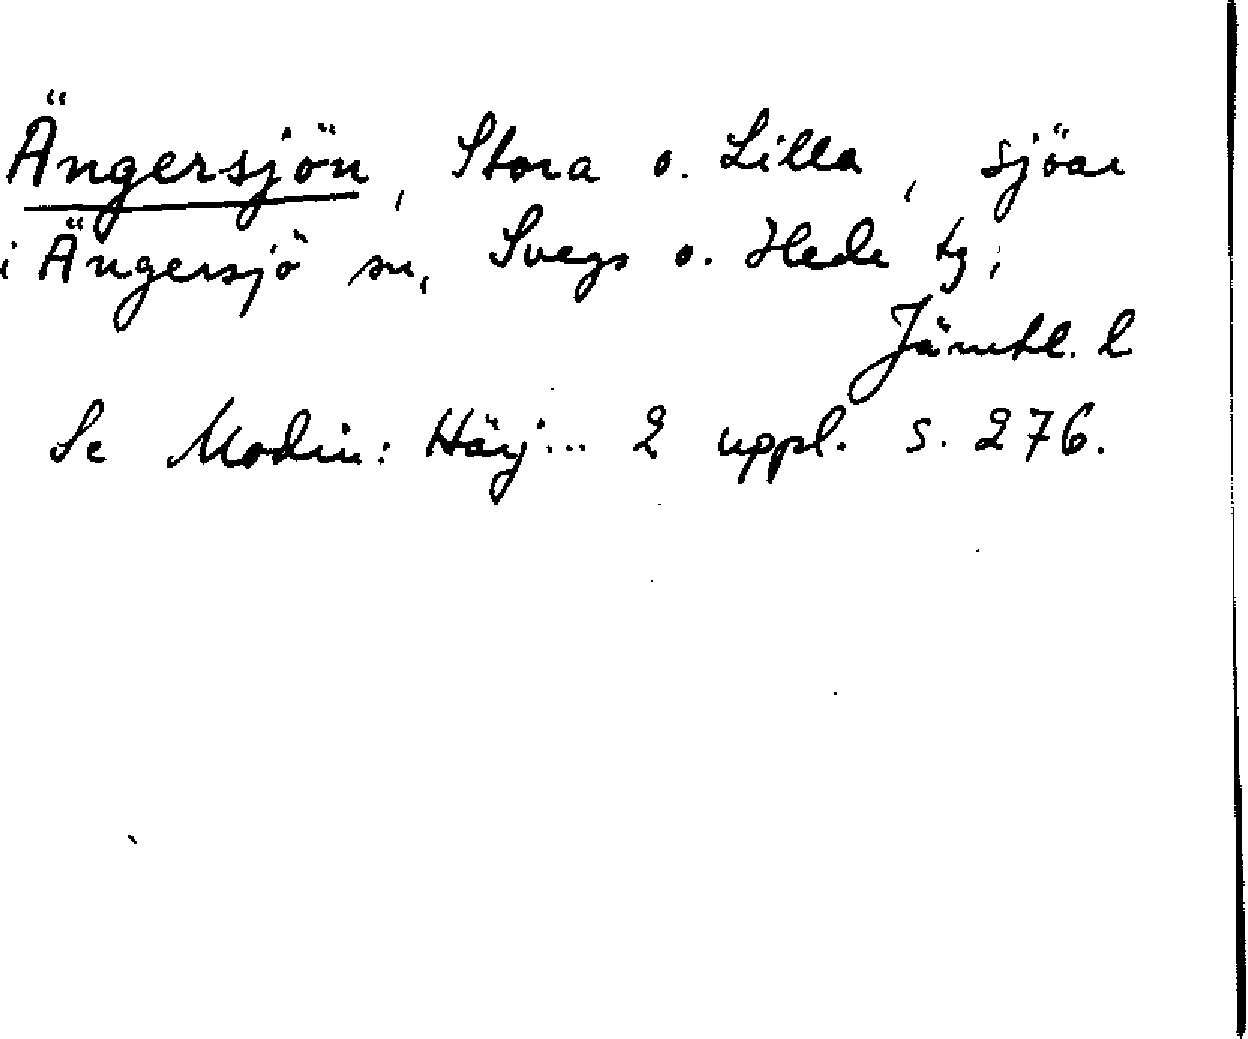 Ängersjön, Stora o. Lilla, sjöar
i Ängersjö sn, Svegs o. Hede tg;
Jämtl. l
Se Modin: Härj... 2 uppl. s. 276.